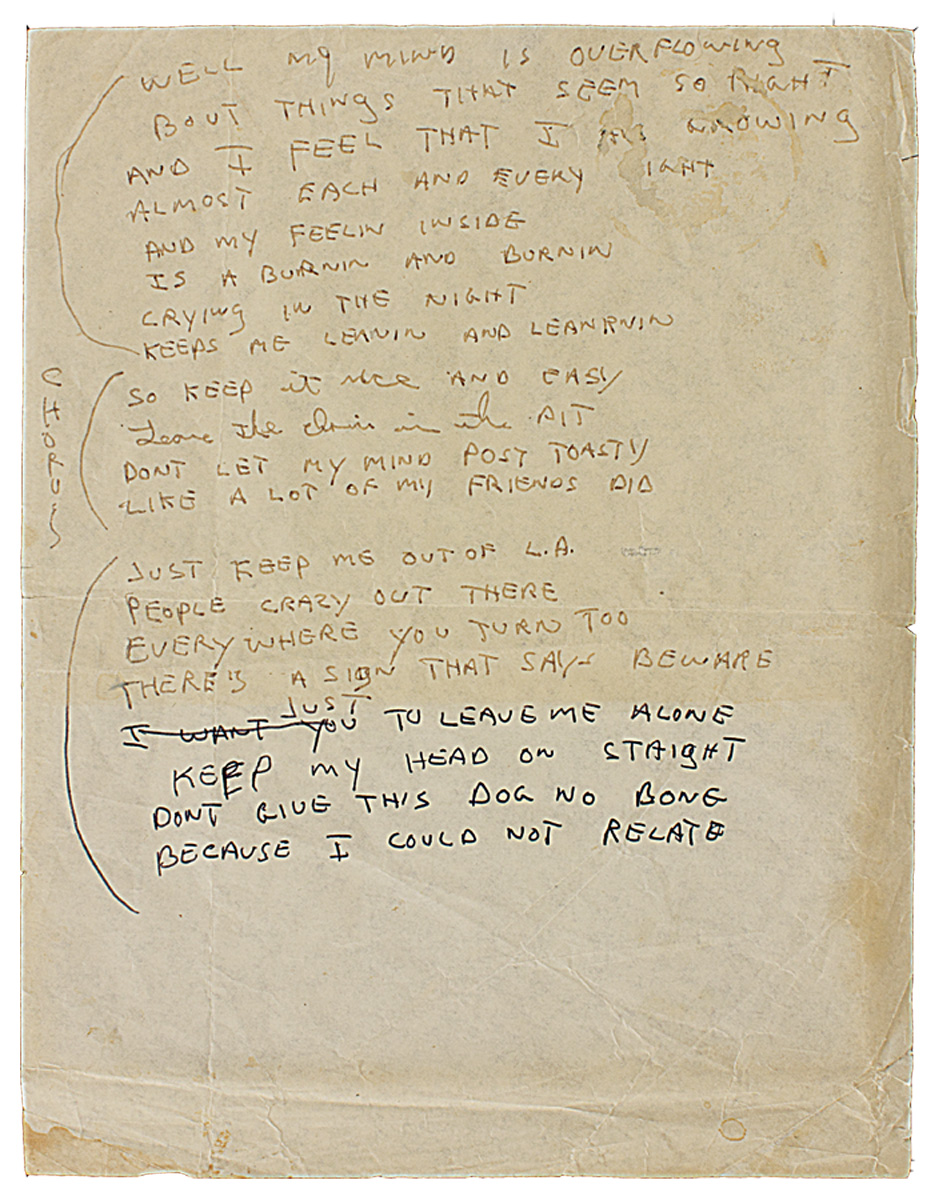 WELL MY MIND IS OVERFLOWING
BOUT THINGS THAT SEEM SO RIGHT
AND I FEEL THAT I AM GROWING
ALMOST EACH AND EVERY IGHT
AND MY FEELIN INSIDE
IS A BURNIN AND BURNIN
CRYING IN THE NIGHT
KEEPS ME LEANIN AND LEANRNIN
CHORUS
SO KEEP it nice AND EASY
Leave The chain in the PIT
DONT LET MY MIND POST TOASTY
LIKE A LOT OF MY FRIENDS DID
JUST KEEP ME OUT OF L.A.
PEOPLE CRAZY OUT THERE
EVERYWHERE YOU TURN TOO
THERE'S A SIGN THAT SAYS BEWARE
JUST
I WANT YOU TO LEAVE ME ALONE
KEEP MY HEAD ON STAIGHT
DONT GIVE THIS DOG NO BONE
BECAUSE I COULD NOT RELATE